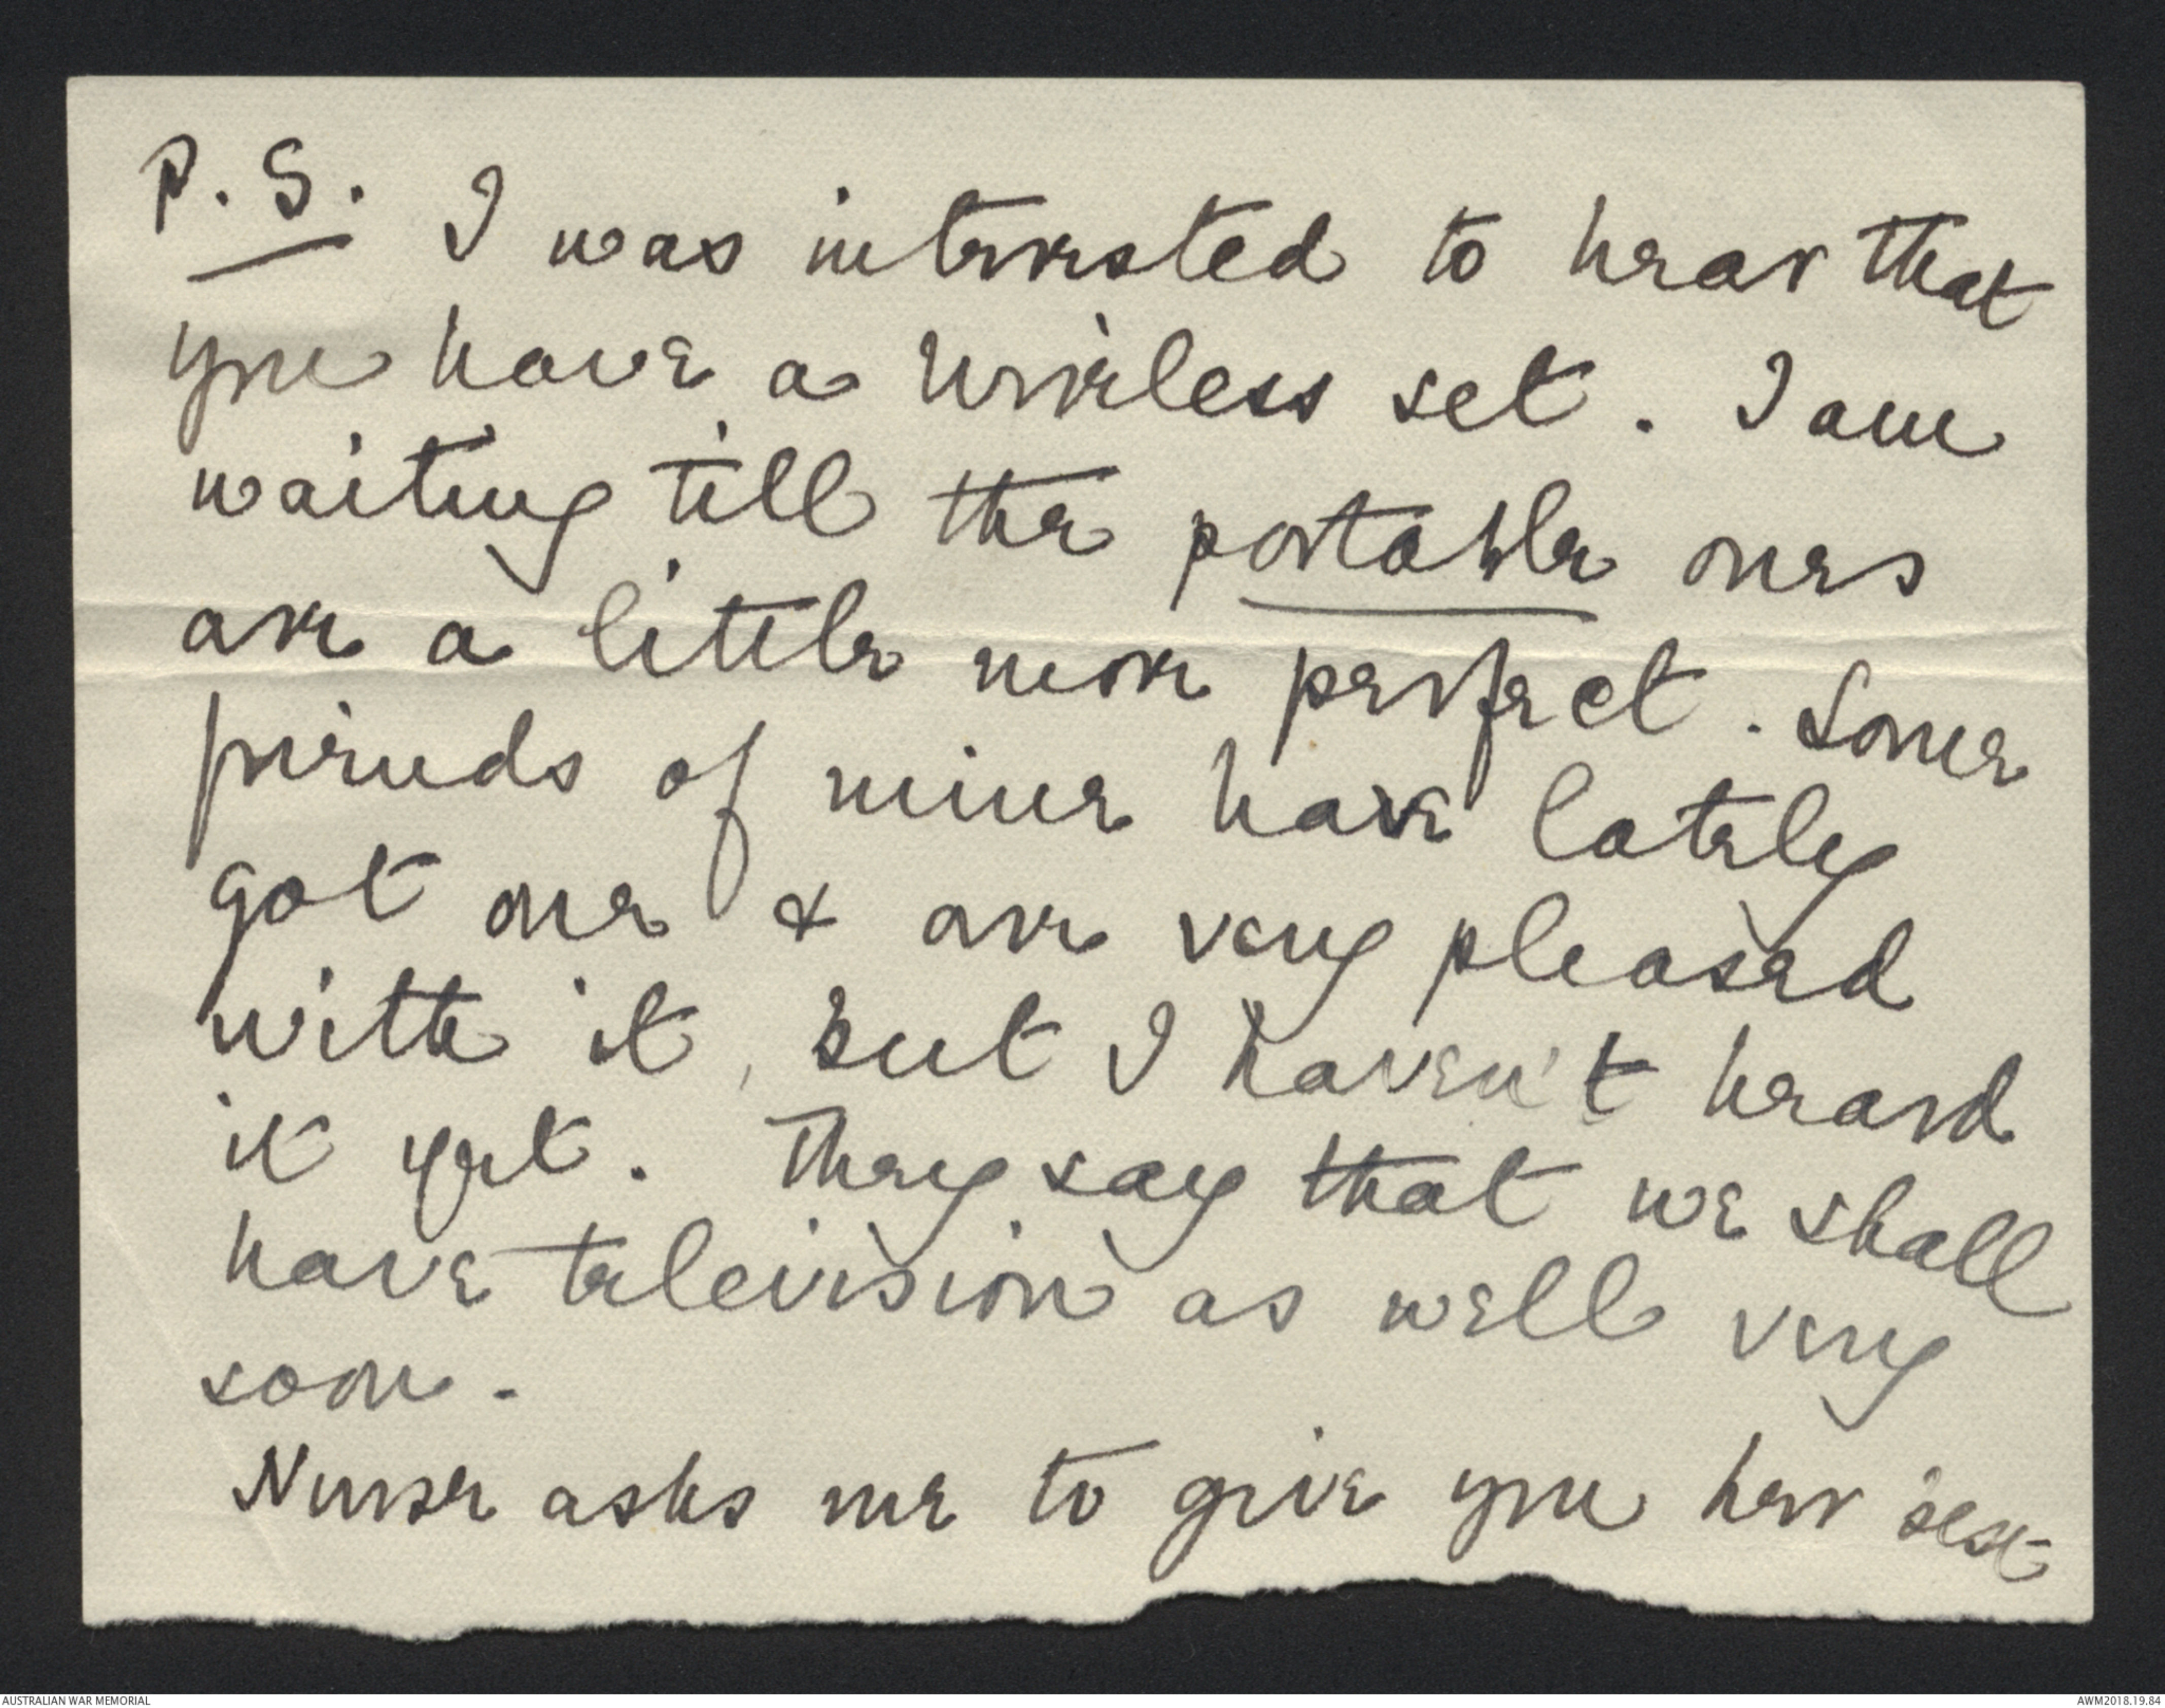 P.S. I was interested to hear that
you have a wireless set. I am
waiting till the portable ones
are a little more perfect. Some
friends of mine have lately
got one & are very pleased
with it, but I haven't heard
it yet. They say that we shall
have television as well very
soon.
Nurse asks me to give you her best
AUSTRALIAN WAR MEMORIAL
AWM2018.19.84